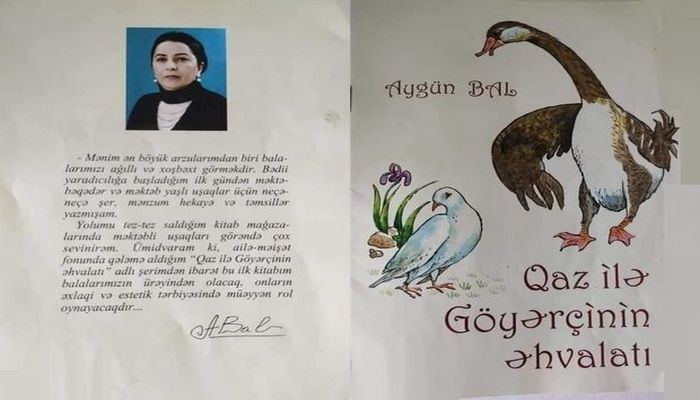 - Mənim ən böyük arzularımdan biri bala-
larımızı ağıllı və xoşbəxt görməkdir. Bədii
yaradıcılığa başladığım ilk gündən məktə-
bəqədər və məktəb yaşlı uşaqlar üçün neçə-
neçə şer, mənzum hekayə və təmsillər
yazmışam.
Yolumu tez-tez saldığım kitab mağaza-
larında məktəbli uşaqları görəndə çox
sevinirəm. Ümidvaram ki, ailə-məişət
fonunda qələmə aldığım “Qaz ilə Göyərçinin
əhvalatı” adlı şerimdən ibarət bu ilk kitabım
balalarımızın ürəyindən olacaq, onların
əxlaqi və estetik tərbiyəsində müəyyən rol
oynayacaqdır...
ABal
Aygün BAL
Qaz ilə
Göyərçinin
əhvalatı